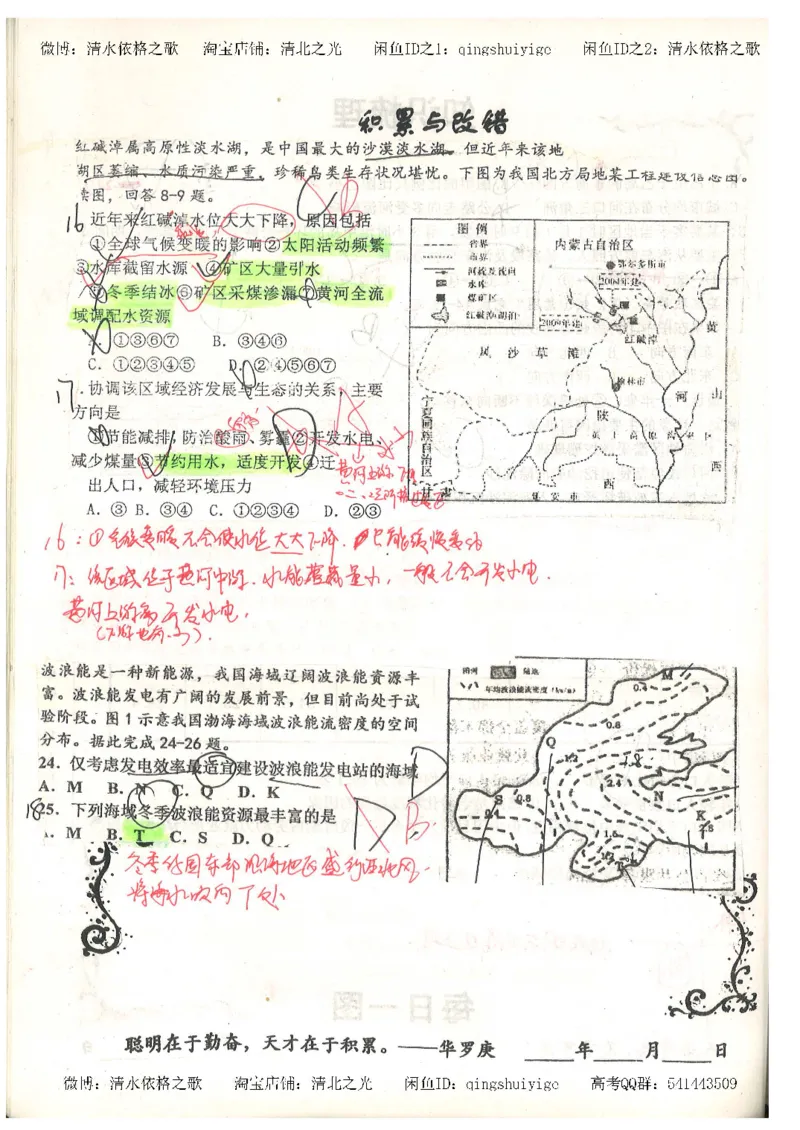 微博：清水依格之歌 淘宝店铺：清北之光 闲鱼ID之1：qingshuiyige 闲鱼ID之2：清水依格之歌
积累与改错
红碱淖属高原性淡水湖，是中国最大的沙漠淡水湖。但近年来该地
湖区萎缩、水质污染严重，珍稀鸟类生存状况堪忧。下图为我国北方局地某工程建设信息图。
读图，回答8-9题。
16 近年来红碱淖水位大大下降，原因包括
①全球气候变暖的影响②太阳活动频繁
③水库截留水源 ④矿区大量引水
⑤冬季结冰⑥矿区采煤渗漏⑦黄河全流
域调配水资源
A. ①③⑥⑦ B. ③④⑥
C. ①②③④⑤ D. ②④⑤⑥⑦
B
17 .协调该区域经济发展与生态的关系，主要
方向是
①节能减排，防治酸雨、雾霾②开发水电，
减少煤量③节约用水，适度开发④迁
出人口，减轻环境压力
A. ③ B. ③④ C. ①②③④ D. ②③
图例
省界
市界
河流及流向
水库
煤矿区
红碱淖(湖泊)
内蒙古自治区
鄂尔多斯市
2004年建
2009年建
红碱淖
风沙草滩
榆林市
黄
河
山
西
宁夏回族自治区
陕
西
黄土高原沟壑区
甘肃
延安市
16：①全球变暖不会使水位大大下降，只能缓慢
17：该区域位于黄河中游，水能蕴藏量小，一般不会开发小电．
黄河上游才开发小电，
波浪能是一种新能源，我国海域辽阔波浪能资源丰
富。波浪能发电有广阔的发展前景，但目前尚处于试
验阶段。图1示意我国渤海海域波浪能流密度的空间
分布。据此完成24-26题。
24．仅考虑发电效率最适宜建设波浪能发电站的海域
A．M B．N C．Q D．K
D
18 25．下列海域冬季波浪能资源最丰富的是
A．M B．T C．S D．Q
D B
陆地
年均波浪能流密度（kw/m）
M
0.4
0.8
Q
1.2
1.8
2.4
N
S
0.8
0.4
K
2.8
1.6
T
冬季我国东部沿海地区盛行西北风，
将海水吹向T处
聪明在于勤奋，天才在于积累。——华罗庚 ____年____月____日
微博：清水依格之歌 淘宝店铺：清北之光 闲鱼ID：qingshuiyige 高考QQ群：541443509